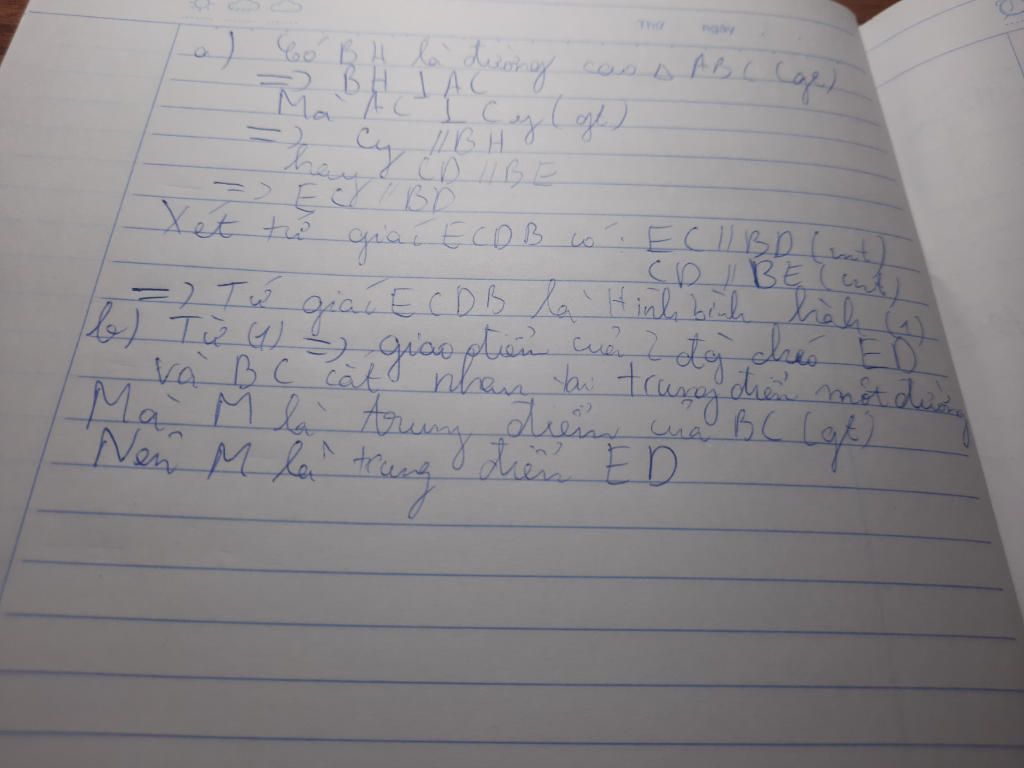 Thứ ngày
a) Có BH là đường cao Δ ABC (gt)
=> BH ⊥ AC
Mà AC ⊥ Cy (gt)
=> Cy // BH
hay CD // BE
=> EC // BD
Xét tứ giác ECDB có: EC // BD (cmt)
CD // BE (cmt)
=> Tứ giác ECDB là Hình bình hành (1)
b) Từ (1) => giao điểm của 2 đg chéo ED
và BC cắt nhau tại trung điểm mỗi đường
Mà M là trung điểm của BC (gt)
Nên M là trung điểm ED